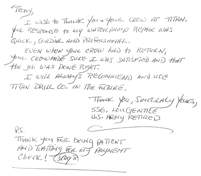 TONY,
I WISH TO THANK YOU & YOUR CREW AT TITAN.
YOUR RESPONSE TO MY WATER PUMP REPAIR WAS
QUICK, CORDIAL AND PROFESSIONAL.
EVEN WHEN YOUR CREW HAD TO RETURN,
YOU, CREW MADE SURE I WAS SATISFIED AND THAT
THE JOB WAS DONE RIGHT.
I WILL ALWAYS RECOMMEND AND USE
TITAN DRILL CO. IN THE FUTURE.
THANK YOU, SINCERELY YOURS,
SSG.
U.S. ARMY RETIRED
PS
THANK YOU FOR BEING PATIENT
AND WAITING FOR MY PAYMENT
CHECK!